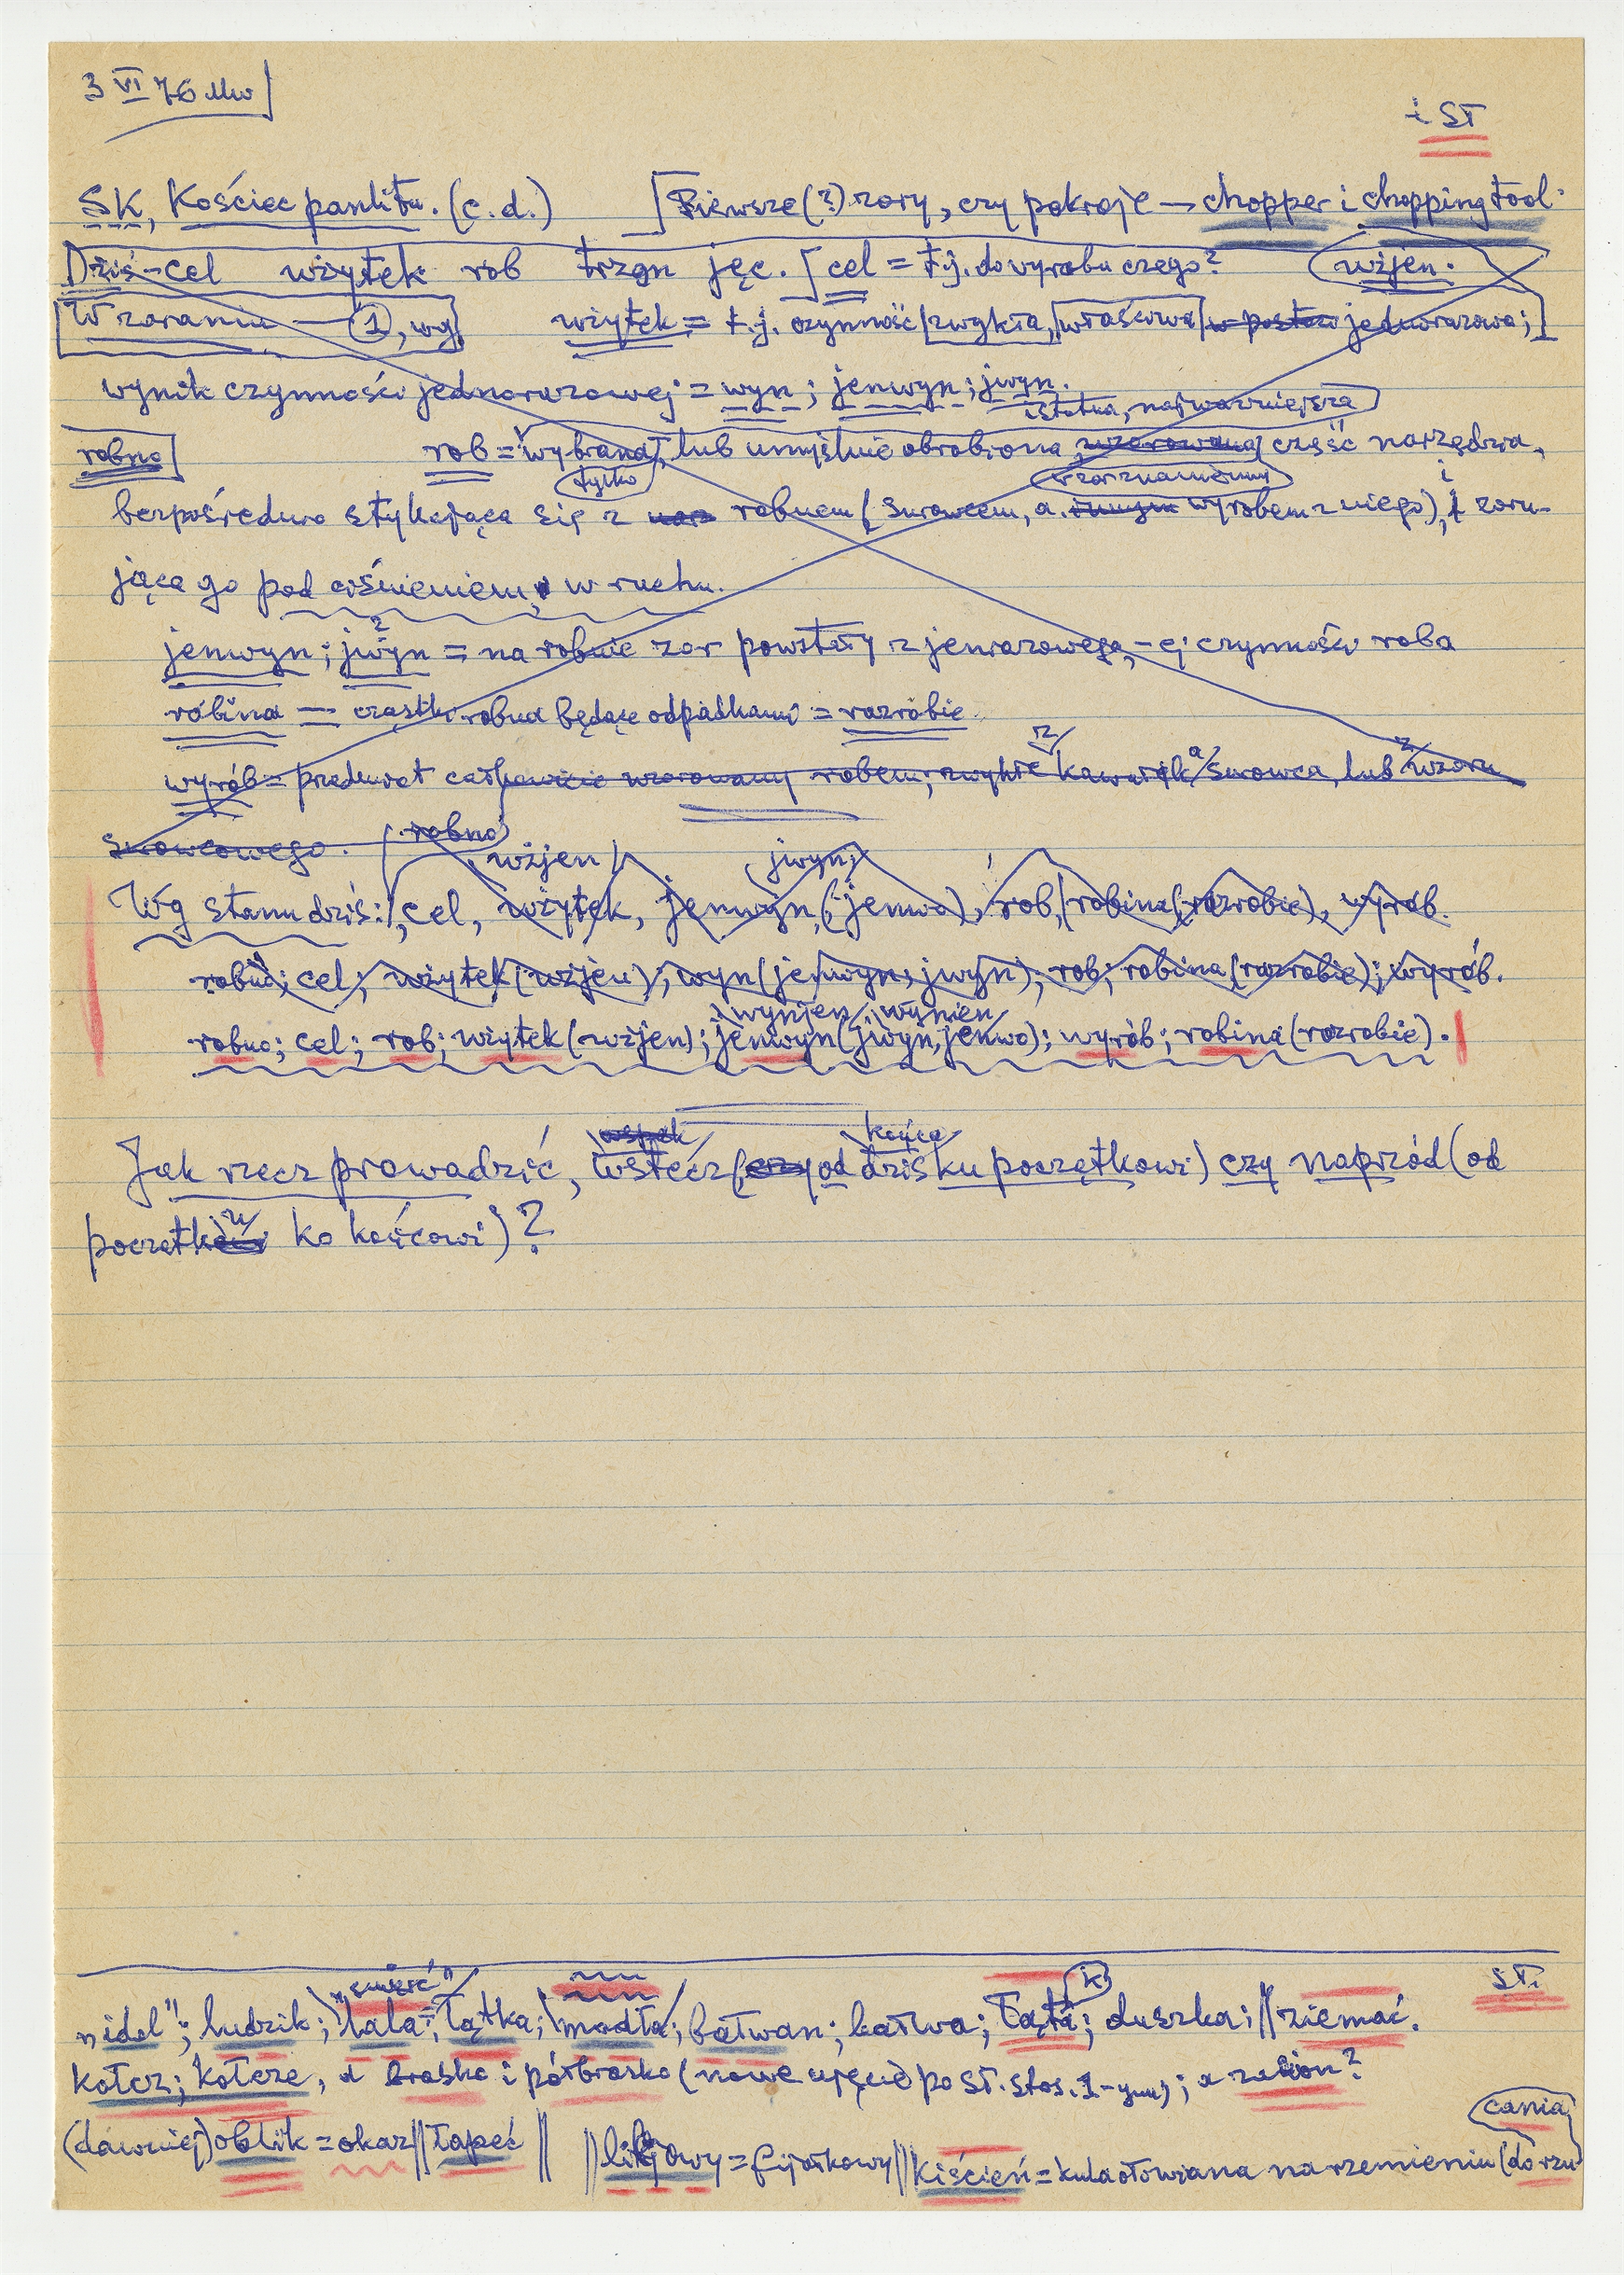 3 VI 76 Mw
i ST
SK, Kościec panlitu. (c.d.) [Pierwsze (?) zory, czy pokroje — chopper i chopping tool.
Dziś - cel użytek rob trzon jęc. [cel = t.j. do wyrobu czego? użjen.
W zaraniu — 1, wg użytek = t.j. czynność zwykła, właściwa w postaw jednorazowa;
wynik czynności jednorazowej = wyn; jenwyn; jwyn.
istotna, najważniejsza
robno rob = wybrana, lub umyślnie obrobiona, wzorowana część narzędzia,
tylko zorznamiennym i
bezpośrednio stykająca się z narz robnem (surowcem, a innym wyrobem z niego), i zoru-
jąca go pod ciśnieniem, w ruchu.
jenwyn; jwyn = na robnie zor powstały z jenrazowego, -ej czynności roba
robina — cząstki robna będące odpadkami = razrobie
wyrób = przedmiot całkowicie wzorowany robem, zwykle kawałek surowca, lub wzoru
surowcowego. robno
użjen jwyn;
Wg stanu dziś: cel, użytek, jenwyn (jenwo), rob, robina (razrobie), wyrób.
robno; cel; użytek (użjen); wyn (jenwyn, jwyn); rob; robina (razrobie); wyrób.
wynjen wynien
robno; cel; rob; użytek (użjen); jenwyn (jwyn, jenwo); wyrób; robina (rozrobie).
wspak końca
Jak rzecz prowadzić, wstecz (czy od dziś ku początkowi) czy naprzód (od
początku ko końcowi)?
ST.
„idol"; ludzik; lala; łątka; modła; bałwan; bałwa; łąta; duszka; || ziemać.
kołcz; kołcze, a brasko i półbrasko (nowe ujęcie po ST. stos. 1-ym); a zalion?
cania
(dawniej) oblik = okaz || łapeć || || lilijowy = fijołkowy || Kiścień = kula ołowiana na rzemieniu (do rzu